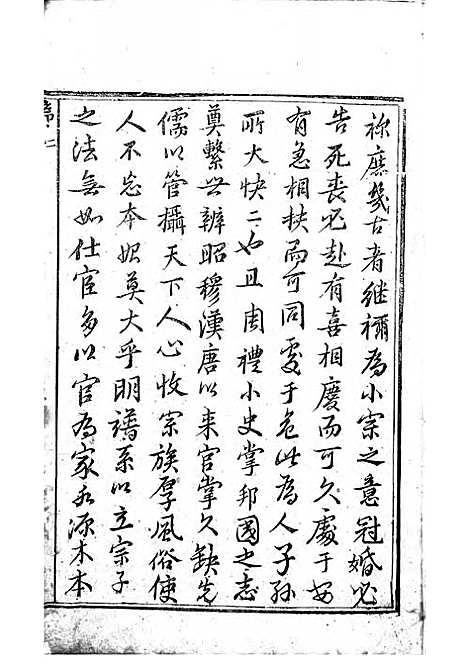 祢庶幾古者继禰為小宗之意冠婚必
告死丧必赴有喜相慶而可久處于安
有急相扶而可同處于危此為人子孫
所大快二也且周禮小史掌邦國之志
奠繫世辨昭穆漢唐以来官掌久缺先
儒以管攝天下人心收宗族厚風俗使
人不忘本始莫大乎明譜系以立宗子
之法無如仕宦多以官為家水源木本
序 二